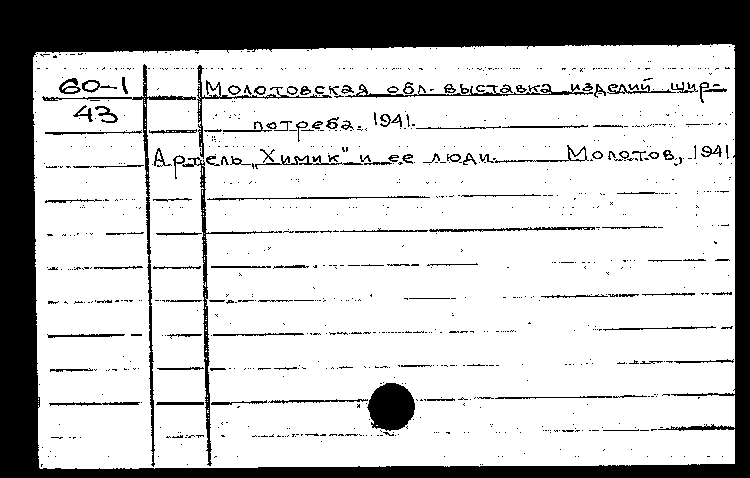 60-1 Молотовская обл. выставка изделий шир-
43 потреба. 1941.
Артель „Химик" и ее люди. Молотов, 1941.